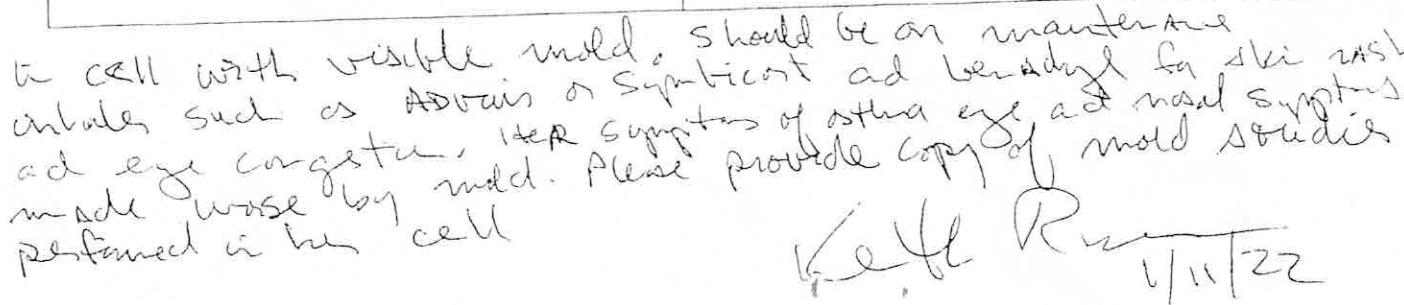 in cell with visible mold. Should be on maintenance
inhaler such as ADVAIR or Symbicort ad benadryl for skin rash
ad eye congestion. Her symptoms of asthma eye ad nasal symptoms
made worse by mold. Please provide copy of mold studies
performed in her cell
Keith
1/11/22